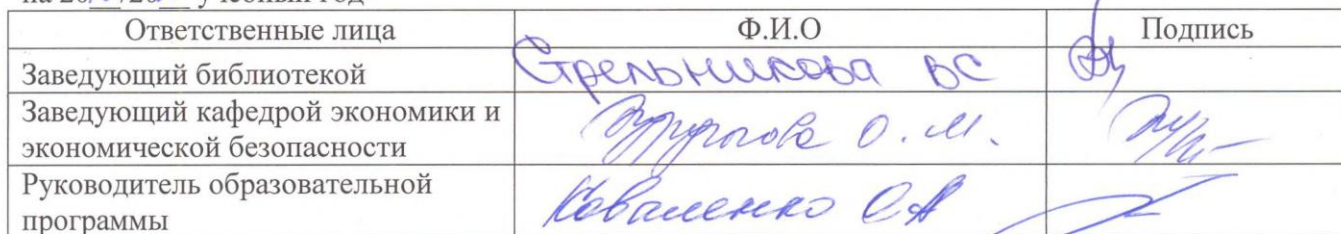 учебный год
Ответственные лица Ф.И.О Подпись
Заведующий библиотекой Стрельникова ВС
Заведующий кафедрой экономики и
экономической безопасности О.М.
Руководитель образовательной
программы Коваленко ОА